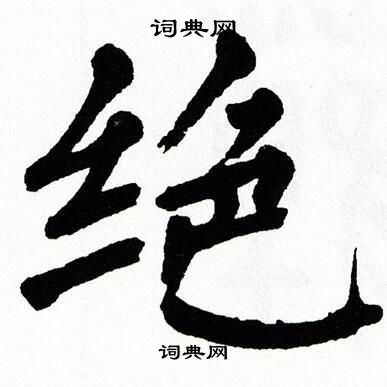 词典网
绝
词典网